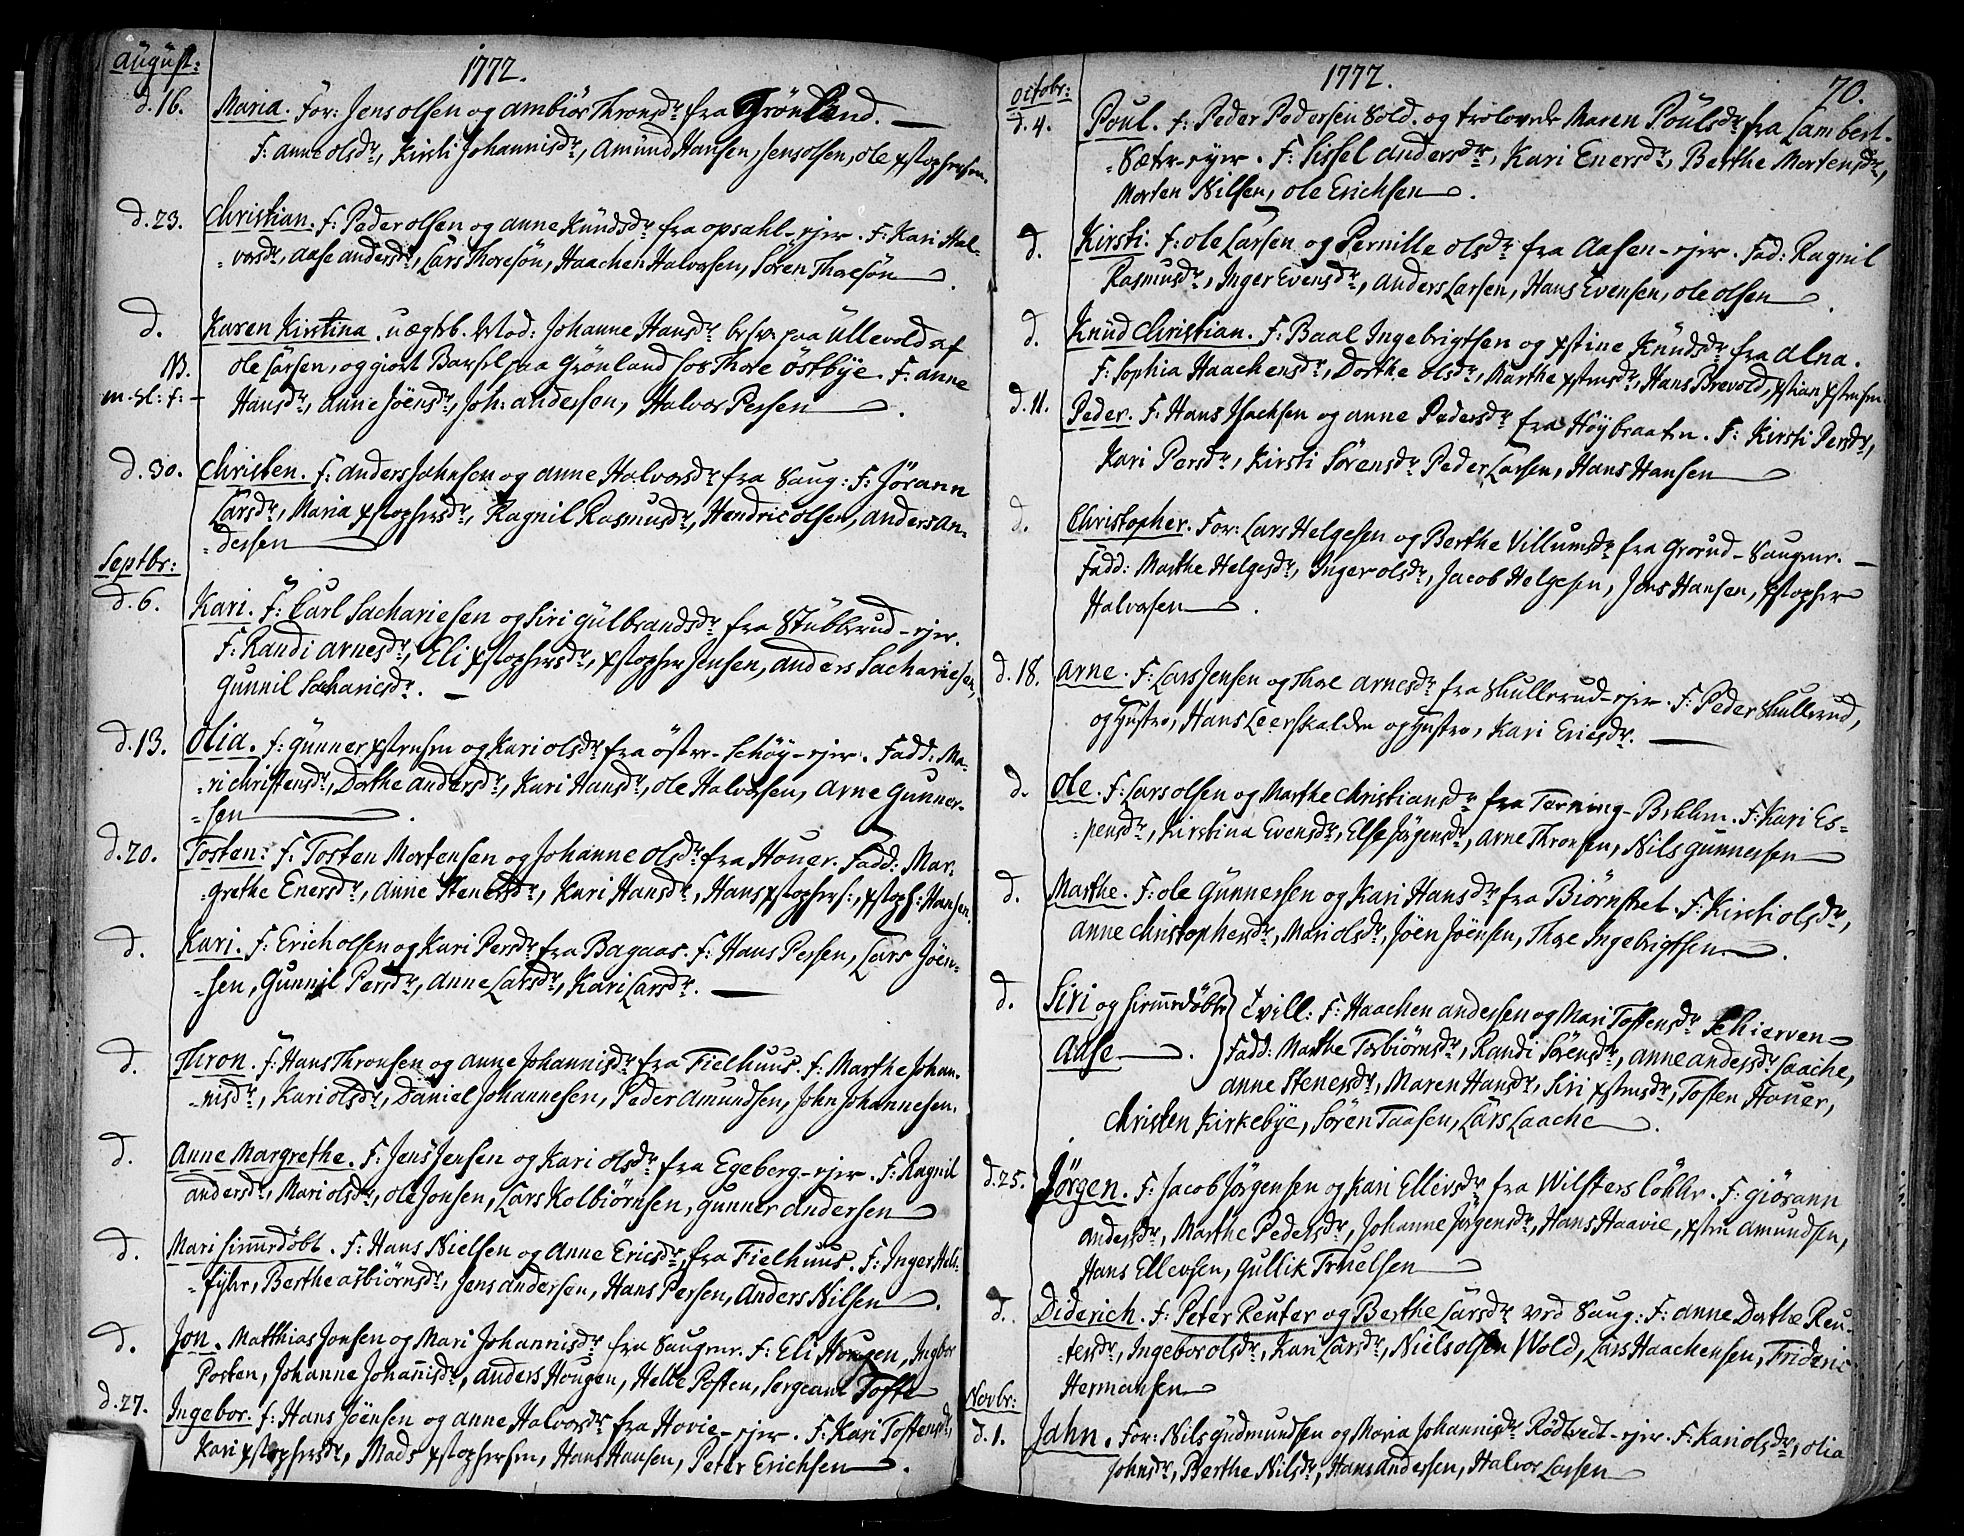 August:
1772.
d. 16.
Maria. For: Jens Olsen og Ambiør Thronsdr fra Grønland. —
F. Anne Olsdr, Kirsti Johannisdr, Amund Hansen, Jens Olsen, Ole Xstophersen.
d. 23.
Christian. F: Peder Olsen og Anne Knudsdr fra Opsahl-ejer. F: Kari Hal-
-vorsdr, Aase Andersdr, Lars Thoresøn, Haachen Halvorsen, Søren Thoresøn.
d.
Karen Kirstina. uægtb. Mod: Johanne Hansdr besv. paa Ullevold af
NB.
Ole Larsen, og giort Barsel paa Grønland hos Thore Østbye. F. Anne
m. sl: f: -
Hansdr, Anne Jöensdr, Joh: Andersen, Halvor Persen.
d. 30.
Christen. F: Anders Johnsen og Anne Halvorsdr fra Saug: F: Jörann
Larsdr, Maria Xstophersdr, Ragnil Rasmusdr, Hendric Olsen, Anders An-
-dersen
Septbr:
d. 6.
Kari. F: Carl Sachariesen og Siri Gulbrandsdr fra Stubberud-ejer.
F: Randi Arnesdr, Eli Xstophersdr, Xstopher Jensen, Anders Sachariesen,
Gunnil Sachariesdr. —
d. 13.
Olia. F: Gunner Xstensen og Kari Olsdr fra Østre-Schøy-ejer. Fadd: Ma-
-ri Christensdr, Dorthe Andersdr, Kari Hansdr, Ole Halvorsen, Arne Gunner-
-sen.
d. 20.
Tosten: F. Tosten Mortensen og Johanne Olsdr fra Houer. Fadd: Mar-
grethe Enersdr, Anne Stenersdr, Kari Hansdr, Hans Xstophers:, Xstoph: Hansen.
d.
Kari. F. Erich Olsen og Kari Persdr fra Bagaas. F: Hans Persen, Lars Jöen-
-sen, Gunnil Persdr, Anne Larsdr, Kari Larsdr. —
d.
Thron. F: Hans Thronsen og Anne Johannisdr fra Fielhuus. F: Marthe Johan-
-nisdr, Kari Olsdr, Daniel Johannesen, Peder Amundsen, John Johannesen.
d.
Anne Margrethe. F. Jens Jensen og Kari Olsdr fra Egeberg-ejer. F: Ragnil
Andersdr, Mari Olsdr, Ole Jonsen, Lars Kolbiørnsen, Gunner Andersen
d.
Mari hiemedöbt. F: Hans Nielsen og Anne Ericsdr fra Fielhuus. F: Inger Hels-
-fyhr, Berthe Asbiørnsdr, Jens Andersen, Hans Persen, Anders Nilsen.
d.
Jon. Matthias Jonsen og Mari Johannisdr fra Saugener. F: Eli Hougen, Ingbor
Posten, Johanne Johannisdr, Anders Hougen, Helle Posten, Sergeant Toffte
d. 27.
Ingebor. F: Hans Jöensen og Anne Halvorsdr fra Hovie-ejer. F: Kari Tostensdr,
Kari Xstophersdr, Mads Xstophersen, Hans Hansen, Peter Erichsen.
Octobr:
1772.
70.
d. 4.
Poul. F: Peder Pedersen Sold. og trolovede Maren Poulsdr fra Lambert-
-Sætr-ejer. F: Sissel Andersdr, Kari Enersdr, Berthe Mortensdr,
Morten Nilsen, Ole Erichsen.
d.
Kirsti: F: Ole Larsen og Pernille Olsdr fra Aasen-ejer. Fad: Ragnil
Rasmusdr, Inger Evensdr, Anders Larsen, Hans Evensen, Ole Olsen.
d.
Knud Christian. F: Baal Ingebrigtsen og Xstine Knudsdr fra Alna.
F. Sophia Haachensdr, Dorthe Olsdr, Marthe Xstensdr, Hans Brevold, Xstian Xstensen.
d. 11.
Peder. F: Hans Isachsen og Anne Pedersdr fra Høybraaten. F: Kirsti Persdr,
Kari Persdr, Kirsti Sørensdr, Peder Larsen, Hans Hansen
d.
Christopher. For: Lars Helgesen og Berthe Villumsdr fra Grorud-Saugener. —
Fadd: Marthe Helgesdr, Inger Olsdr, Jacob Helgesen, Jens Hansen, Xstopher
Halvorsen.
d. 18.
Arne. F: Lars Jensen og Thore Arnesdr fra Skullerud-ejer. F: Peder Skullerud,
og Hustro, Hans Leerskalden og Hustro, Kari Ericsdr. —
d.
Ole. F: Lars Olsen og Marthe Christiansdr fra Terning-Bekken. F: Kari Es-
-pensdr, Kirstina Evensdr, Else Jørgensdr, Arne Thronsen, Nils Gunnersen
d.
Marthe. F: Ole Gunnersen og Kari Hansdr fra Biørnstret. F: Kirsti Olsdr,
Anne Christophersdr, Mari Olsdr, Jöen Jöensen, Thore Ingebrigtsen.
d.
Siri og hiemedöbte } tvill: F: Haachen Andersen og Mari Tostensdr Schierven
Aase. Fadd: Marthe Torbiørnsdr, Randi Sørensdr, Anne Andersdr Laache,
Anne Stenersdr, Maren Hansdr, Siri Xstensdr, Tosten Houer,
Christen Kirkebye, Søren Taasen, Lars Laache.
d. 25.
Jörgen. F: Jacob Jørgensen og Kari Ellevsdr fra Wilsters Løkke. F: Giörann
Andersdr, Marthe Pedersdr, Johanne Jørgensdr, Hans Haavie, Xsten Amundsen,
Hans Ellevsen, Gullik Truelsen
d.
Diderich. F: Peter Reuter og Berthe Larsdr ved Saug: F: Anne Dorthe Reu-
-tersdr, Ingebor Olsdr, Kari Larsdr, Niels Olsen Wold, Lars Haachensen, Frideric
Hermansen
Novbr:
d. 1.
Jahn. For: Nils Gudmundsen og Maria Johannisdr Rødtvedt-ejer. F: Kari Olsdr, Olia
Johnsdr, Berthe Nilsdr, Hans Andersen, Halvor Larsen